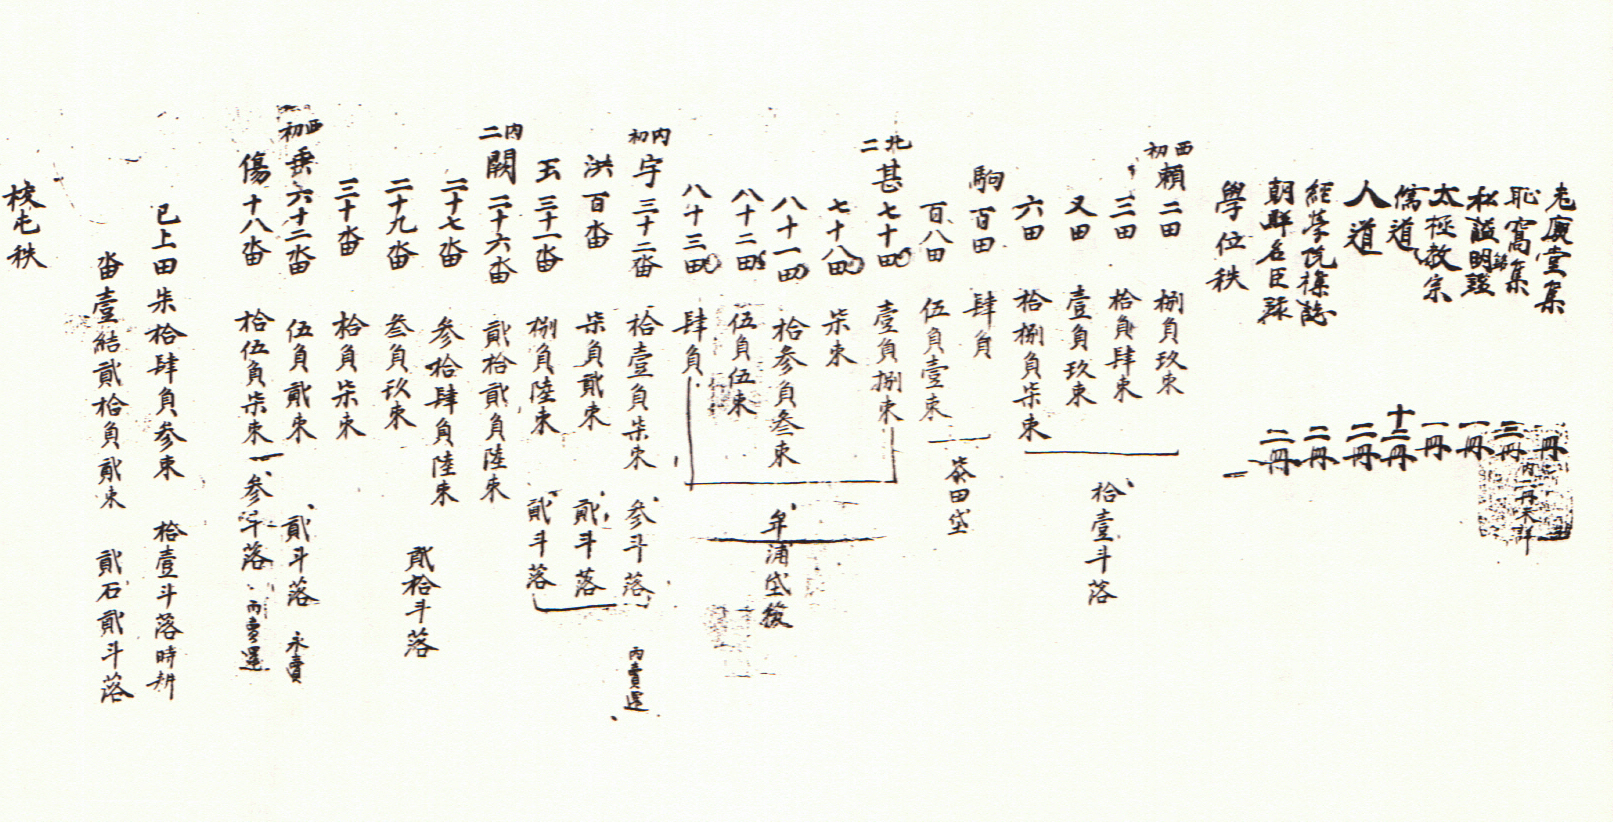 老廋堂集 一冊 內一冊未詳
恥窩集 三冊
松諡明證錄 一冊
太極教宗 一冊
儒道 十二冊
人道 二冊
經學院襍誌 二冊
朝鮮名臣錄 二冊
學位秩
西初 賴 二田 捌負玖束
三田 拾負肆束 拾壹斗落
又田 壹負玖束
六田 拾捌負柒束
駒 百田 肆負
百八田 伍負壹束 田垈
北二 甚 七十田 壹負捌束
七十八田 柒束
八十一田 拾参負叁束 牟浦垈後
八十二田 伍負伍束
八十三田 肆負
內初 宇 三十二畓 拾壹負柒束 参斗落 內賣還
洪 百畓 柒負貳束 貳斗落
玉 三十一畓 捌負陸束 貳斗落
內二 闕 二十六畓 貳拾貳負陸束
二十七畓 参拾肆負陸束 貳拾斗落
二十九畓 叁負玖束
三十畓 拾負柒束
西初 垂 六十二畓 伍負貳束 貳斗落 永賣
傷 十八畓 拾伍負柒束 参斗落 內賣還
已上田 柒拾肆負参束 拾壹斗落時耕
畓壹結貳拾負貳束 貳石貳斗落
校屯秩